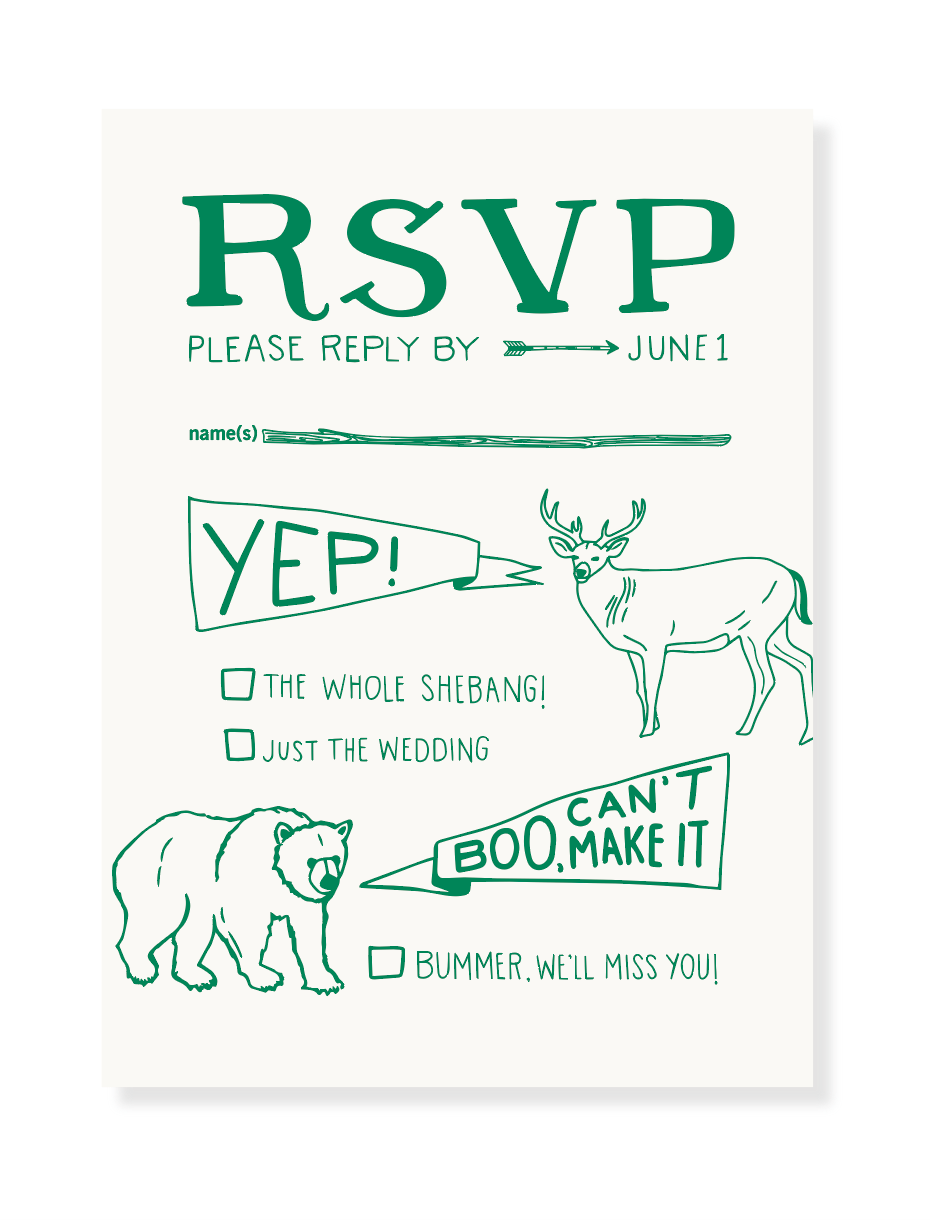 RSVP
PLEASE REPLY BY JUNE 1
name(s)
YEP!
THE WHOLE SHEBANG!
JUST THE WEDDING
BOO, CAN'T
MAKE IT
BUMMER, WE'LL MISS YOU!